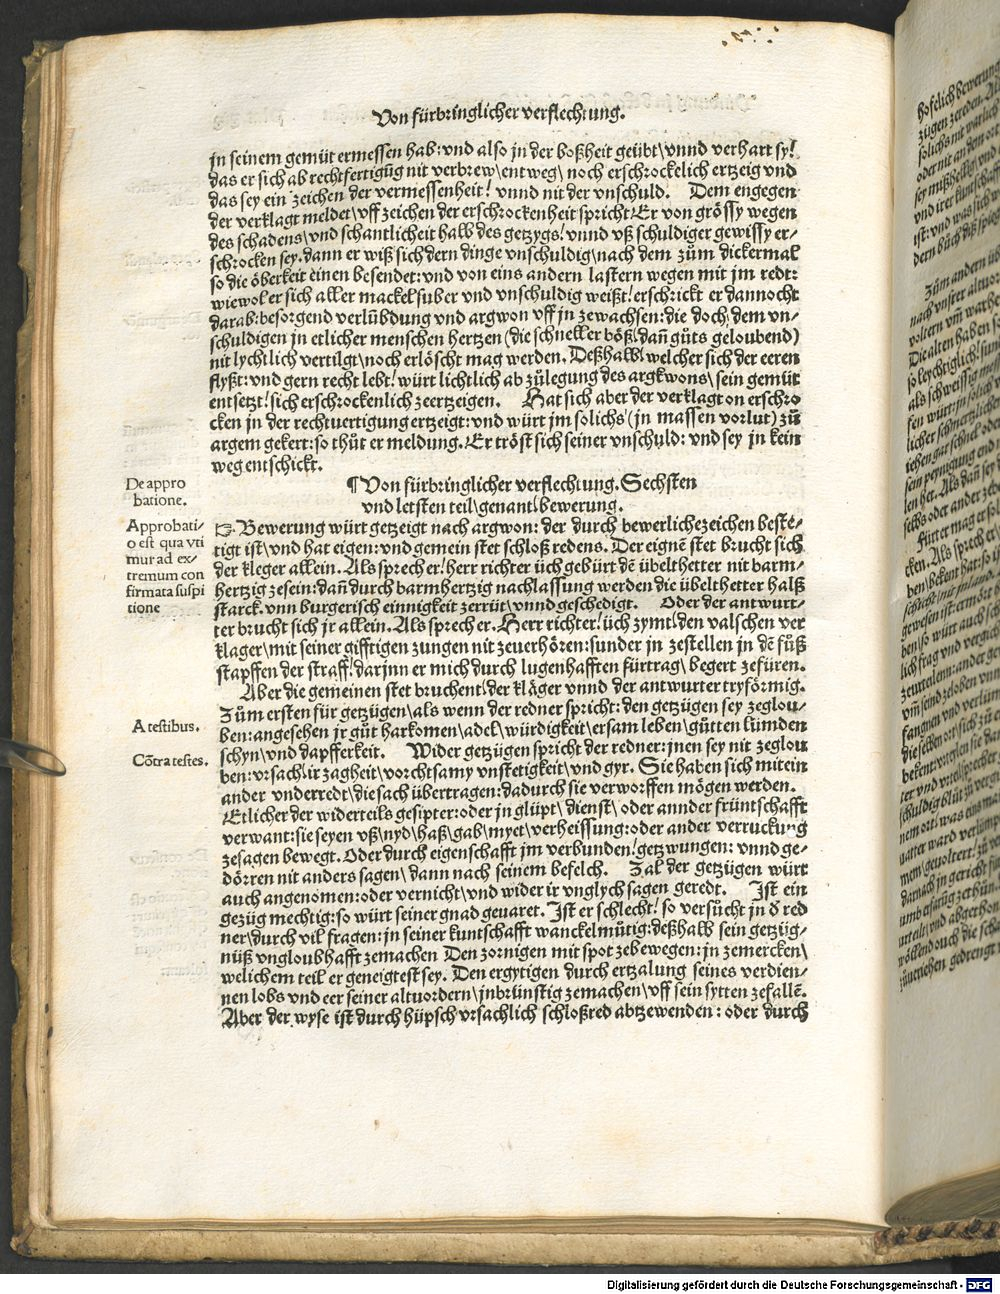 Von fürbringlicher verflechtung.
jn seinem gemüt ermessen hab: vnd also jn der boßheit geübt\ vnnd verhart sy!
das er sich ab rechtfertigūg nit verbrew\ entweg\ noch erschrockelich ertzeig vnd
das sey ein zeichen der vermessenheit! vnnd nit der vnschuld. Dem engegen
der verklagt meldet\ vff zeichen der erschrockenheit spricht! Er von grössy wegen
des schadens\ vnd schantlicheit halb des getzygs! vnnd vß schuldiger gewissy er-
schrocken sey. dann er wiß sich dern dinge vnschuldig\ nach dem zům dickermal
so die öberkeit einen besendet: vnd von eins andern lastern wegen mit jm redt:
wiewol er sich aller mackel suber vnd vnschuldig weißt! erschrickt er dannocht
darab: besorgend verlübdung vnd argwon vff jn zewachsen: die doch\ dem vn-
schuldigen jn etlicher menschen hertzen (die schneller böß\ dañ gůts geloubend)
nit lychtlich vertilgt\ noch erlöscht mag werden. Deßhalb\ welcher sich der eeren
flyßt: vnd gern recht lebt! würt lichtlich ab zůlegung des argkwons\ sein gemüt
entsetzt! sich erschrockenlich zeertzeigen. Hat sich aber der verklagt on erschro
cken jn der rechtuertigung ertzeigt: vnd würt jm solichs (in massen vorlut) zů
argem gekert: so thůt er meldung. Er tröst sich seiner vnschuld: vnd sey jn kein
weg entschickt.
De appro
batione.
¶ Von fürbringlicher verflechtung. Sechsten
vnd letsten teil\ genant bewerung.
Approbati-
o est qua vti
mur ad ex-
tremum con
firmata suspi
tione
☞ Bewerung würt getzeigt nach argwon: der durch bewerliche zeichen beste-
tigt ist\ vnd hat eigen: vnd gemein stet schloß redens. Der eignē stet brucht sich
der kleger allein. Als sprech er! herr richter üch gebürt dē übelthetter nit barm-
hertzig zesein: dañ durch barmhertzig nachlassung werden die übelthetter halß
starck. vnn burgerisch einnigkeit zerrüt\ vnnd geschedigt. Oder der antwurt-
ter brucht sich jr allein. Als sprech er. Herr richter! üch zymt\ den valschen ver
klager\ mit seiner gifftigen zungen nit zeuerhören: sunder jn zestellen jn dē fůß
stapffen der straff! darjnn er mich durch lugenhafften fürtrag\ begert zefüren.
Aber die gemeinen stet bruchent\ der kläger vnnd der antwurter tryförmig.
A testibus.
Zům ersten für getzügen\ als wenn der redner spricht: den getzügen sey zeglou-
ben: angesehen jr gůt harkomen\ adel\ würdigkeit\ ersam leben\ gůtten lümden
Cōtra testes.
schyn\ vnd dapfferkeit. Wider getzügen spricht der redner: jnen sey nit zeglou
ben: vrsach\ ir zagheit\ vorchtsamy vnstetigkeit\ vnd gyr. Sie haben sich mitein
ander vnderredt\ die sach übertragen: dadurch sie verworffen mögen werden.
Etlicher der widerteils gesipter: oder jn glüpt\ dienst\ oder annder früntschafft
verwant: sie seyen vß\ nyd\ haß\ gab\ myet\ verheissung: oder ander verruckung
zesagen bewegt. Oder durch eigenschafft jm verbunden! getzwungen: vnnd ge-
dörren nit anders sagen\ dann nach seinem befelch. Zal der getzügen würt
auch angenomen: oder vernicht\ vnd wider ir vnglych sagen geredt. Ist ein
gezüg mechtig: so würt seiner gnad geuaret. Ist er schlecht! so versůcht jn d̄ red
ner\ durch vil fragen: jn seiner kuntschafft wanckelmůtig: deßhalb sein getzüg-
nüß vngloubhafft zemachen Den zornigen mit spot zebewegen: jn zemercken\
welichem teil er geneigtest sey. Den ergytigen durch ertzalung seines verdien-
nen lobs vnd eer seiner altuordern\ jnbrünstig zemachen\ vff sein sytten zefallē.
Aber der wyse ist durch hüpsch vrsachlich schloßred abtzewenden: oder durch
Digitalisierung gefördert durch die Deutsche Forschungsgemeinschaft - DFG